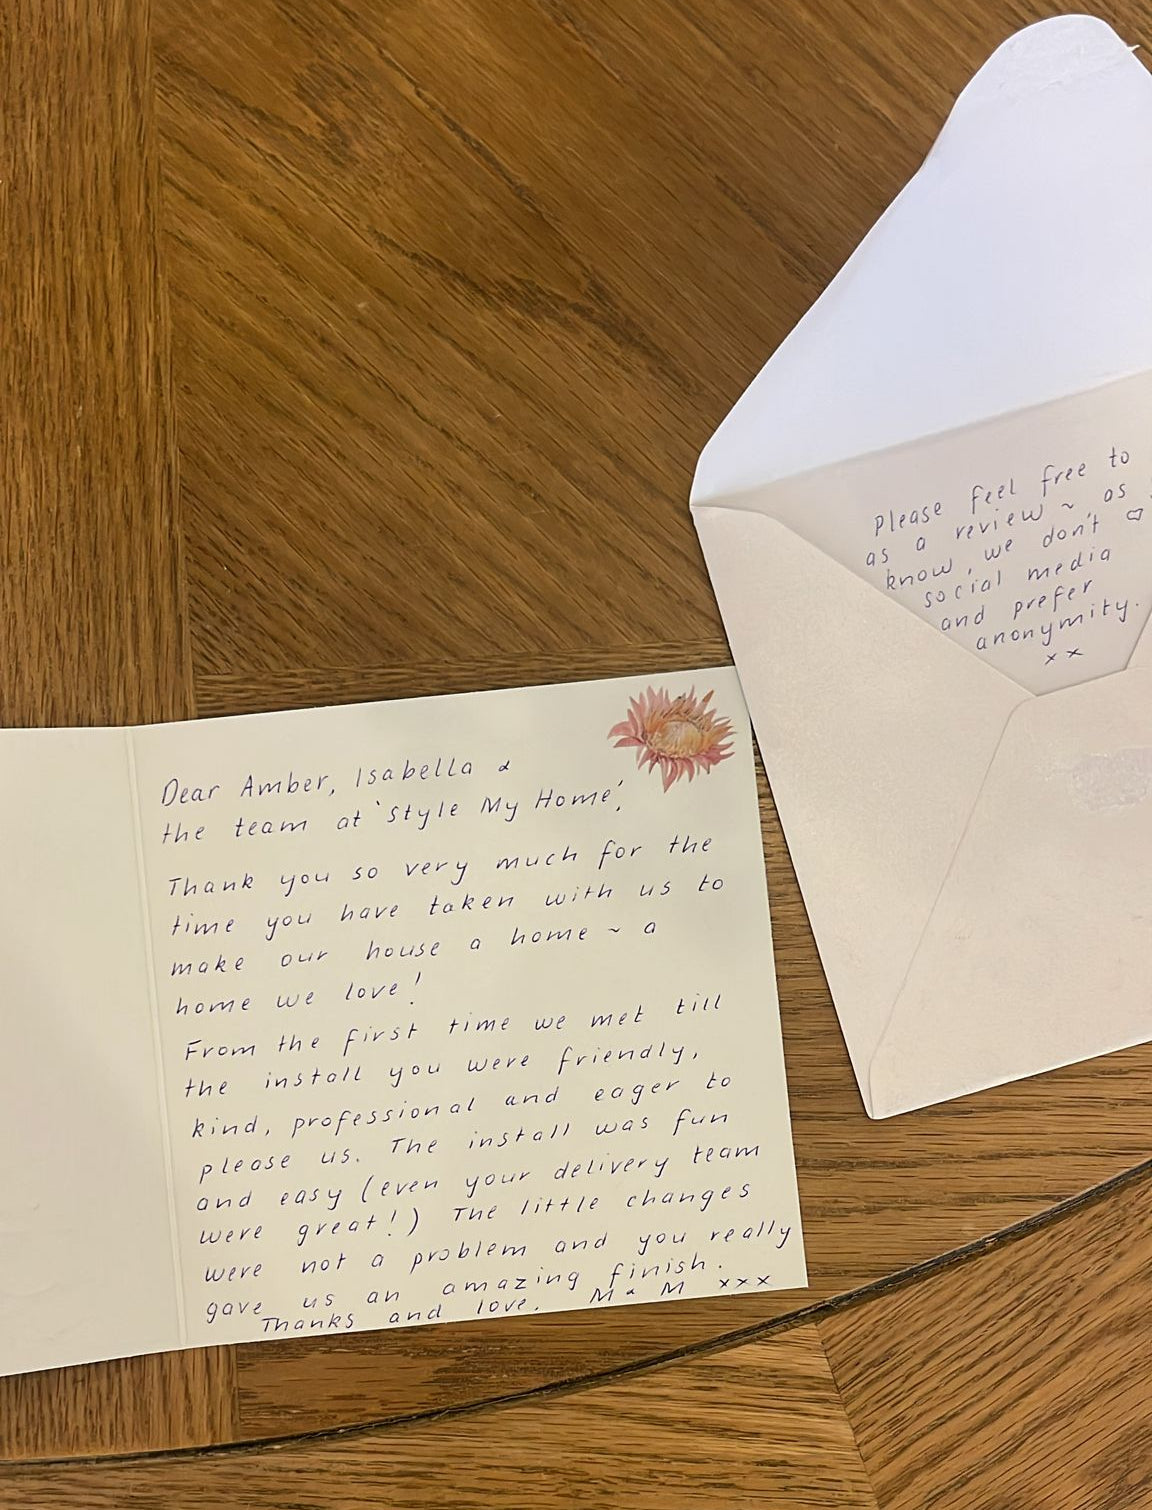 Please feel free to
as a review ~ as
know, we don't
social media
and prefer
anonymity.
x x
Dear Amber, Isabella &
the team at 'Style My Home',
Thank you so very much for the
time you have taken with us to
make our house a home ~ a
home we love!
From the first time we met till
the install you were friendly,
kind, professional and eager to
please us. The install was fun
and easy (even your delivery team
were great!) The little changes
were not a problem and you really
gave us an amazing finish.
Thanks and love. M & M xxx